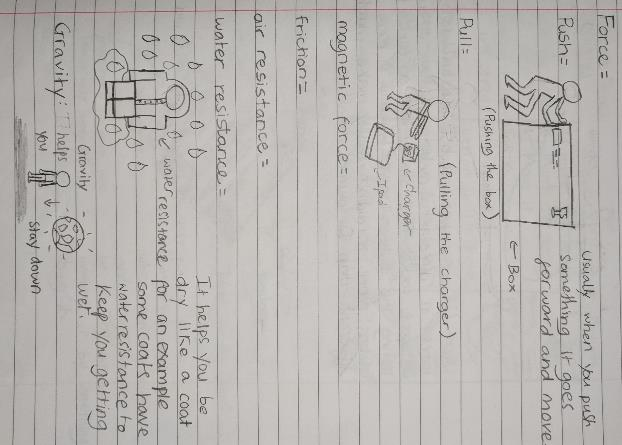 Force =
Push = Usually when you push
something it goes
forward and move
(Pushing the box)
← Box
Pull =
(Pulling the charger)
← charger
← Ipad
magnetic force =
friction =
air resistance =
water resistance =
It helps you be
dry like a coat
← water resistance for an example
some coats have
water resistance to
Keep you getting
wet.
Gravity: helps
you stay down
Gravity